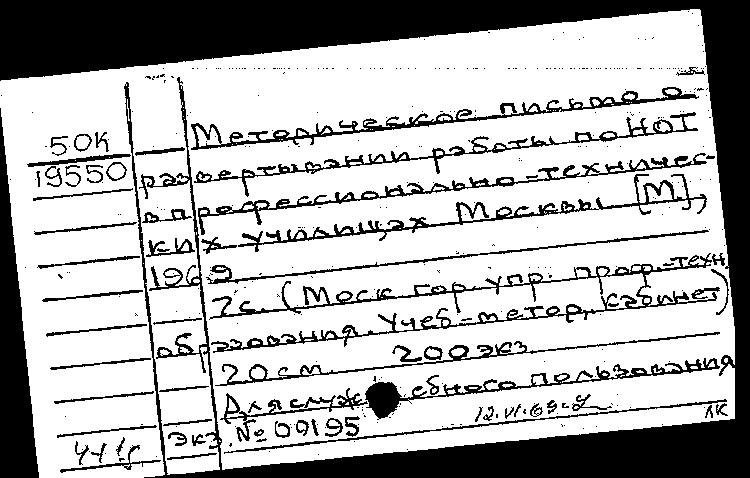 50К
19550
Методическое письмо о
развертывании работы по НОТ
в профессионально-техничес-
ких училищах Москвы [М],
1969
7с. (Моск гор. упр. проф.-техн.
образования. Учеб-метод. кабинет)
20см. 200 экз.
Для служебного пользования
Экз. № 00195
ЛК